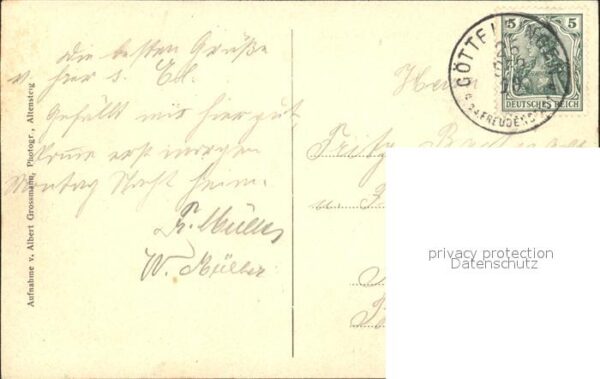 Die besten Grüße
v. hier s. Ed.
Gefällt mir hier gut
komme erst morgen
Montag Nacht heim.
Fr. Müller
W. Müller
Aufnahme v. Albert Grossmann, Photogr., Altensteig
GÖTTEL
FREUDENS
5 5
DEUTSCHES REICH
Fritz
u.
privacy protection
Datenschutz